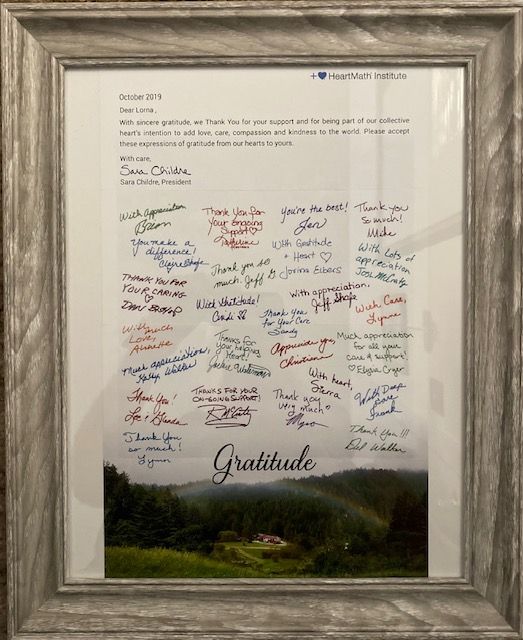 HeartMath Institute
October 2019
Dear Lorna ,
With sincere gratitude, we Thank You for your support and for being part of our collective
heart's intention to add love, care, compassion and kindness to the world. Please accept
these expressions of gratitude from our hearts to yours.
With care,
Sara Childre
Sara Childre, President
With Appreciation
Thank You for
Your Ongoing
Support
Katherine
You're the best!
Jen
Thank you
so much!
Mike
You make a
difference!
Claire Shafe
Thank you so
much, Jeff G.
With Gratitude
+ Heart
Jorina Elbers
With Lots of
appreciation
THANK YOU FOR
YOUR CARING
With Gratitude!
Cindi
With appreciation,
Jeff Shafe
With Care,
Lynne
With much
Love,
Annette
Thanks for
your helping
Heart!
Jackie Waterman
Thank You
for Your Care
Sandy
Appreciate you,
Christiana
Much appreciation
for all your
care & support!
Much appreciation,
Kathy Walker
Thank You!
Lee & Glenda
THANKS FOR YOUR
ON-GOING SUPPORT!
Thank you
very much
With heart,
Sierra
With Deep
Care
Frank
Thank You
so much!
Thank You!!!
Walker
Gratitude